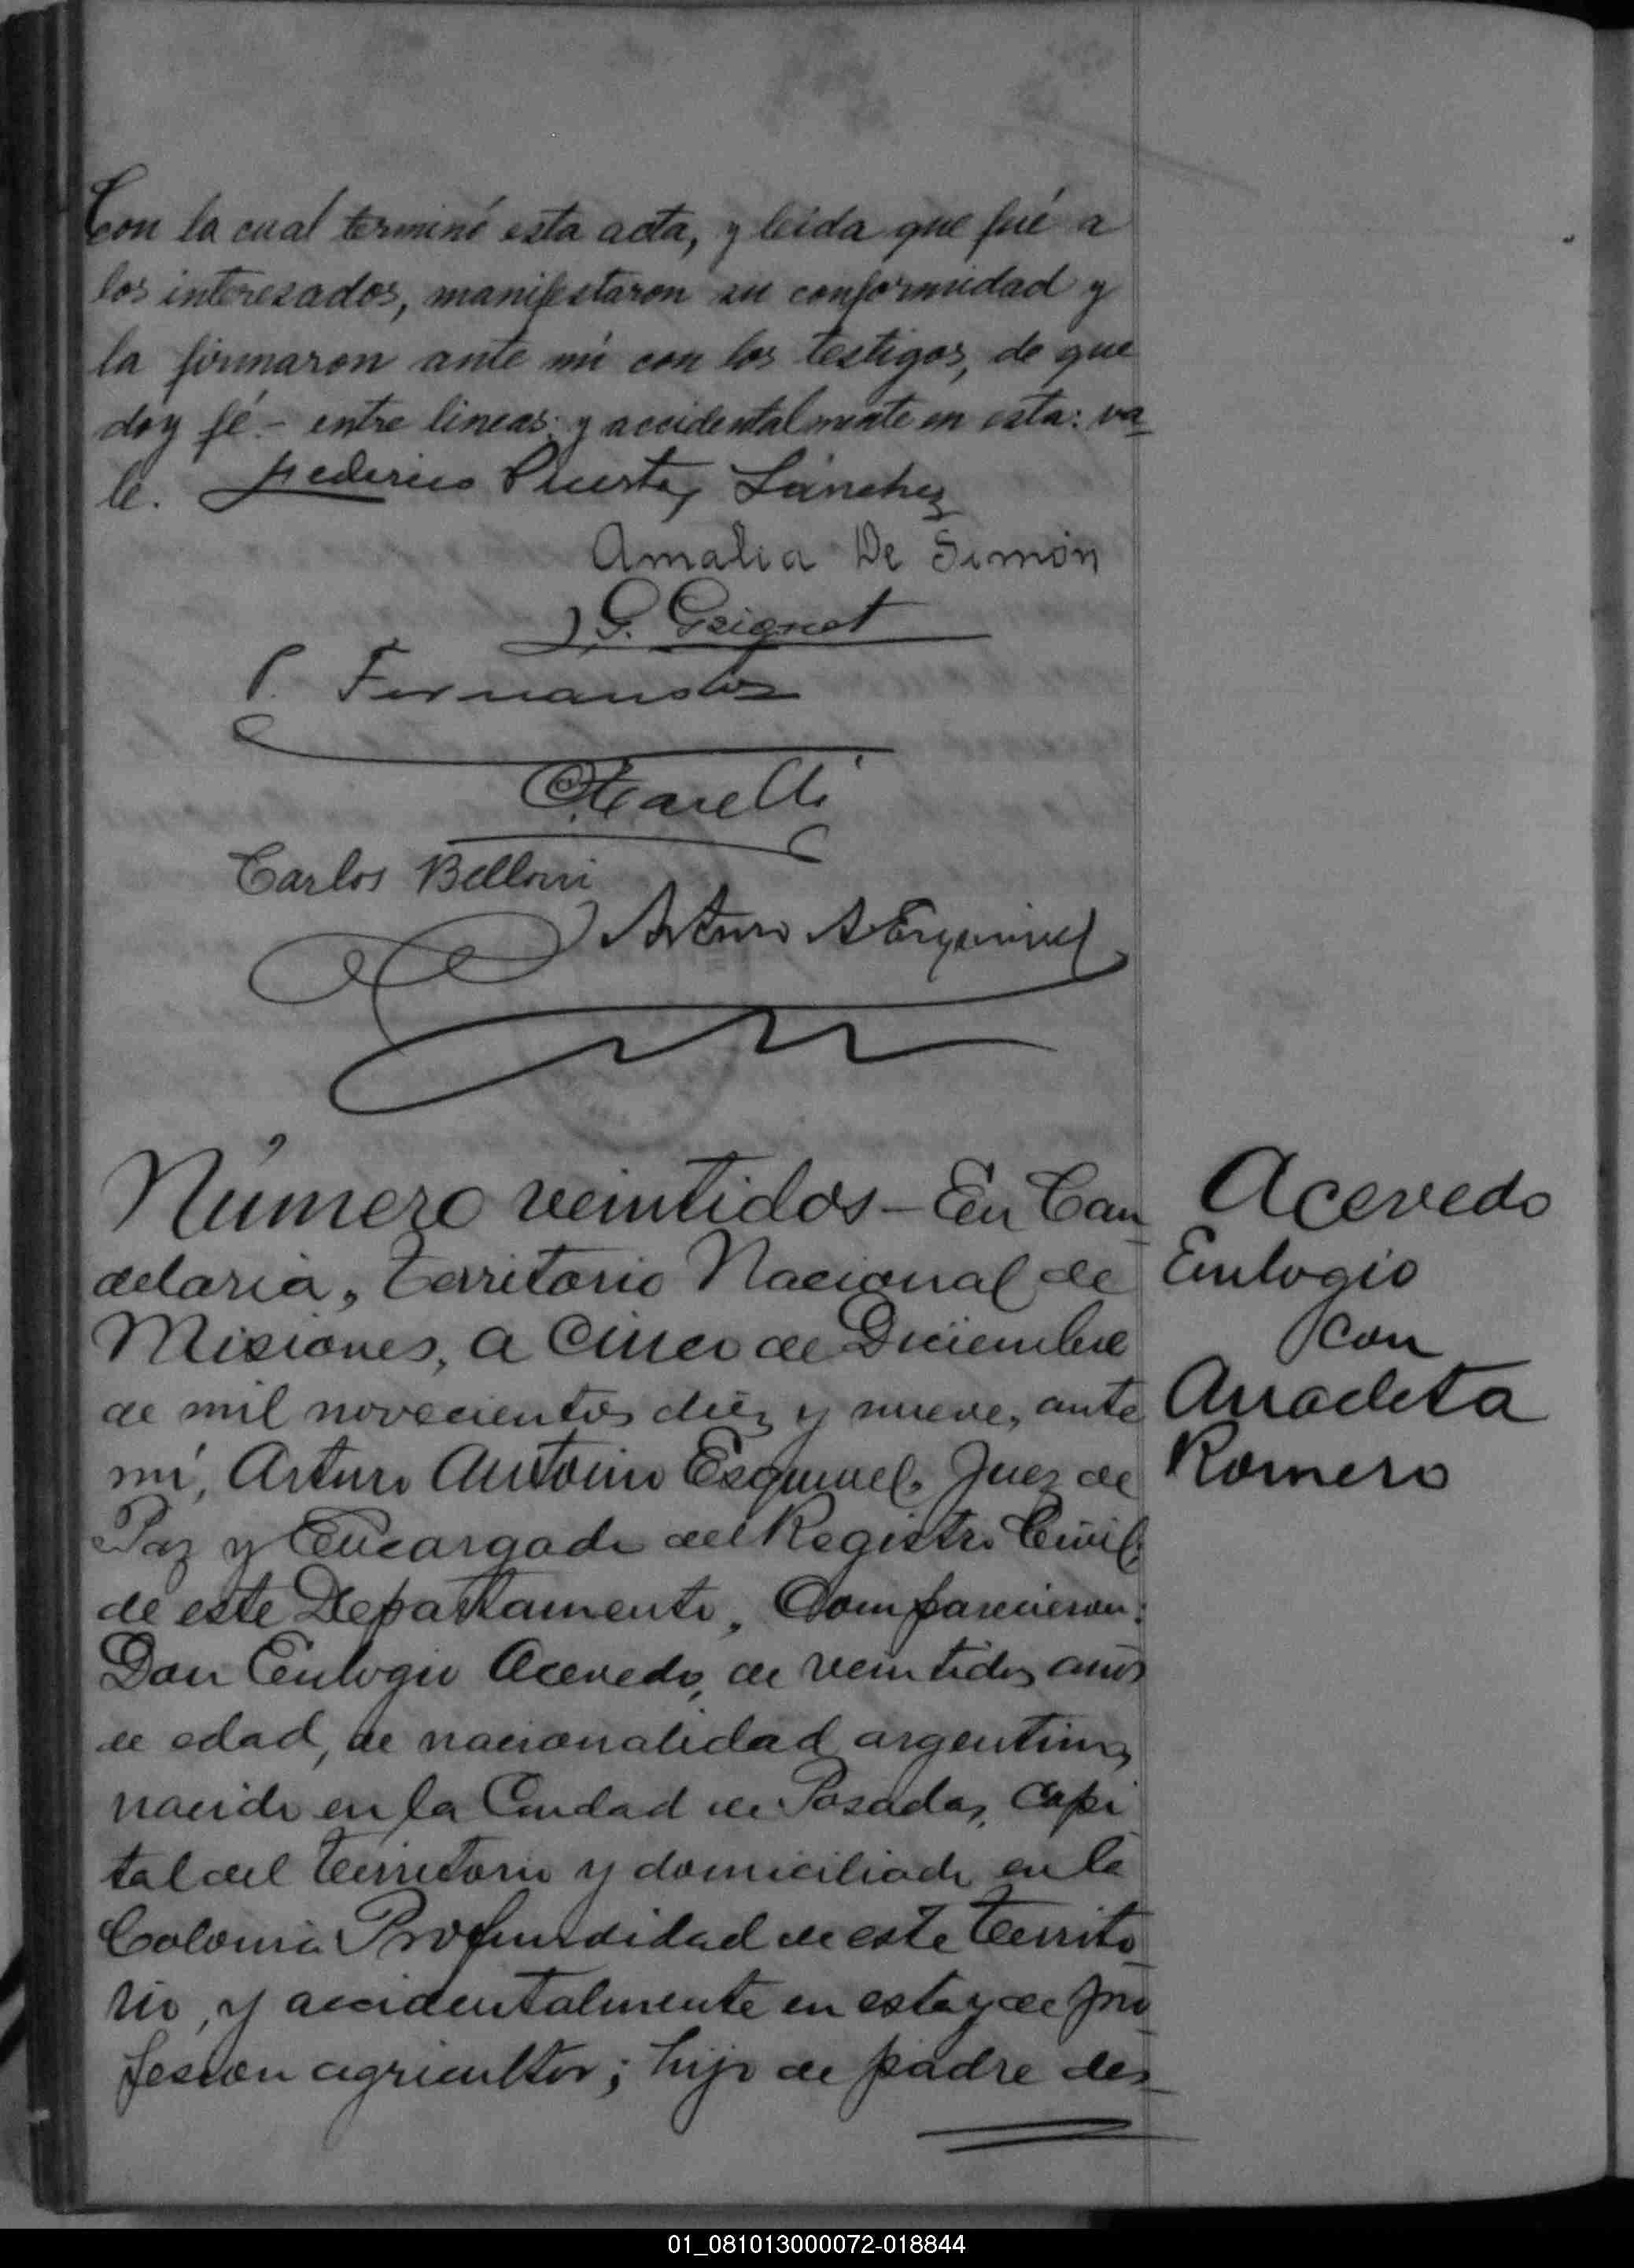 Con la cual terminó esta acta, y leida que fué a
los interesados, manifestaron su conformidad y
la firmaron ante mi con los testigos, de que
doy fé.- entre lineas: y accidentalmente en esta: va-
le. Federico Puertas Sánchez
Amalia De Simón
P. Fernandez
Carlos Belloni
Arturo A Esquivel
Número veintidos - En Can-
delaria, territorio Nacional de
Misiones, a Cinco de Diciembre
de mil novecientos diez y nueve, ante
mi, Arturo Antonio Esquivel, Juez de
Paz y Encargado del Registro Civil
de este Departamento, Comparecieron:
Don Eulogio Acevedo, de veintidos años
de edad, de nacionalidad argentino,
nacido en la Ciudad de Posadas, Capi
tal del territorio y domiciliado en la
Colonia Profundidad de este territo
rio, y accidentalmente en esta y de pro
fesion agricultor; hijo de padre des-
Acevedo
Eulogio
con
Anacleta
Romero
01_081013000072-018844